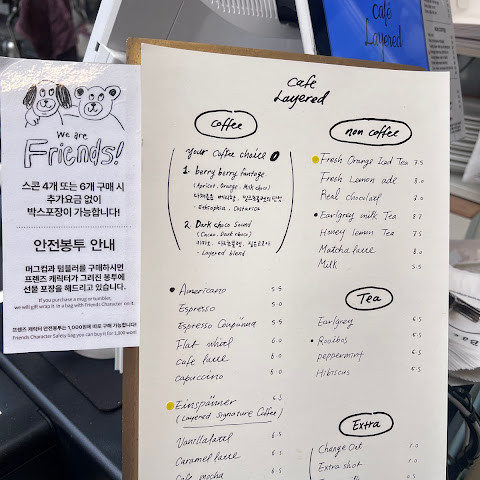 We are
Friends!
스콘 4개 또는 6개 구매 시
추가요금 없이
박스포장이 가능합니다!
안전봉투 안내
머그컵과 텀블러를 구매하시면
프렌즈 캐릭터가 그려진 봉투에
선물 포장을 해드리고 있습니다.
If you purchase a mug or tumbler,
we will gift wrap it in a bag with Friends Character on it.
프렌즈 캐릭터 안전봉투는 1,000원에 따로 구매 가능합니다!
Friends Character Safety bag you can buy it for 1,000 won
café
Layered
Cafe
Layered
Coffee
your Coffee choice
1. berry berry fantage
(Apricot, Orange, Milk choco)
- Ethiopia, Costarica
2. Dark choco Sound
(Cacao, Dark choco)
- Layered blend
Americano 5.5
Espresso 5.0
Espresso Conpanna 5.5
Flat white 6.0
Cafe latte 6.0
Capuccino 6.0
Einspänner 6.5
(Layered signature Coffee)
Vanilla latte 6.5
Caramel latte 6.5
Cafe mocha 6.5
non coffee
Fresh Orange Iced Tea 7.5
Fresh Lemon ade 8.0
Real chocolate 7.0
Earlgrey milk Tea 8.7
Honey lemon Tea 7.5
Matcha latte 8.0
Milk 5.5
Tea
Earlgrey 6.5
Rooibos 6.5
peppermint 6.5
Hibiscus 6.5
Extra
Change Oat 1.0
Extra shot 1.0